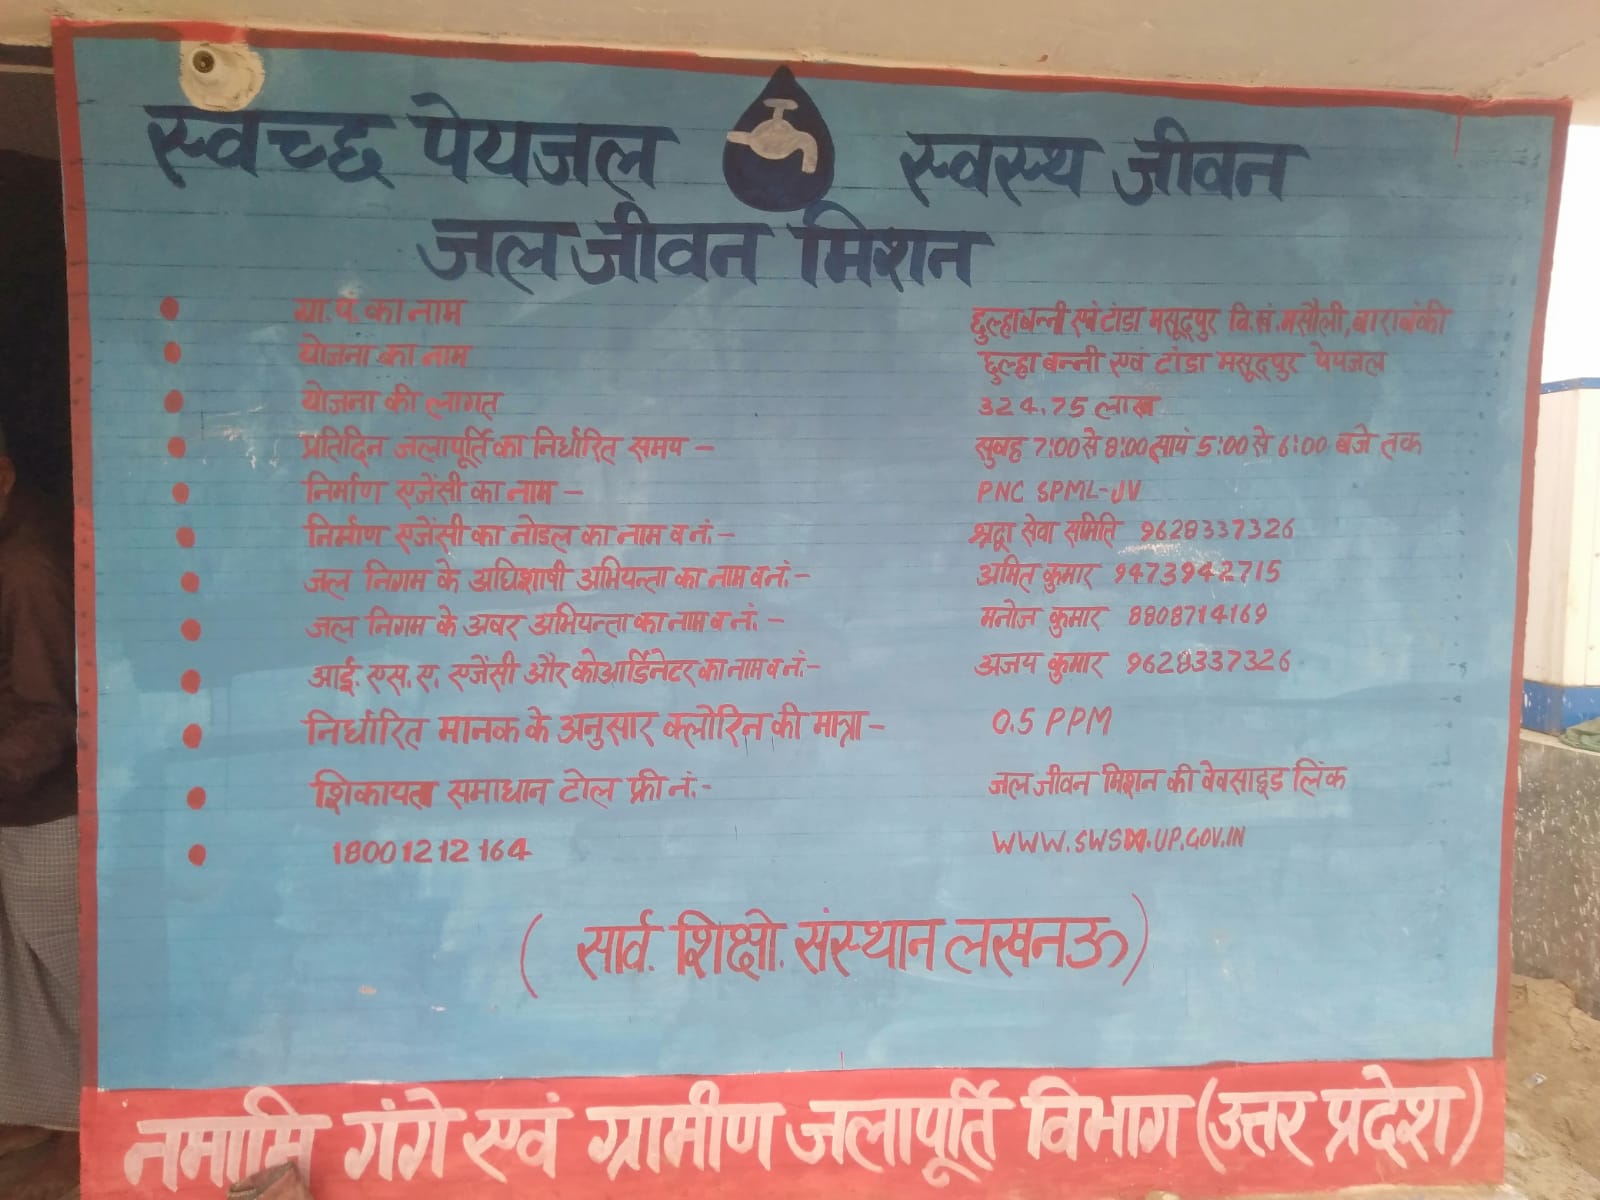 स्वच्छ पेयजल स्वस्थ जीवन
जल जीवन मिशन
ग्रा. पं. का नाम दुल्हाबन्नी एवं टांडा मसूद्पुर वि.सं. मसौली, बाराबंकी
योजना का नाम दुल्हा बन्नी एवं टांडा मसूद्पुर पेयजल
योजना की लागत 324.75 लाख
प्रतिदिन जलापूर्ति का निर्धारित समय - सुबह 7:00 से 8:00 सायं 5:00 से 6:00 बजे तक
निर्माण एजेंसी का नाम - PNC SPML-JV
निर्माण एजेंसी का नोडल का नाम व नं:- श्रद्धा सेवा समिति 9628337326
जल निगम के अधिशाषी अभियन्ता का नाम व नं:- अमित कुमार 9473942715
जल निगम के अवर अभियन्ता का नाम व नं. - मनोज कुमार 8808714169
आई. एस. ए. एजेंसी और कोआर्डिनेटर का नाम व नं:- अजय कुमार 9628337326
निर्धारित मानक के अनुसार क्लोरिन की मात्रा - 0.5 PPM
शिकायत समाधान टोल फ्री नं:- जल जीवन मिशन की वेवसाइड लिंक
18001212164 WWW.SWSM.UP.GOV.IN
( सार्व. शिक्षो. संस्थान लखनऊ )
नमामि गंगे एवं ग्रामीण जलापूर्ति विभाग (उत्तर प्रदेश)